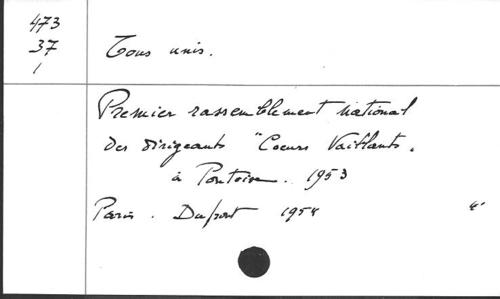 473
37
1
Tous unis.
Premier rassemblement national
des dirigeants "Coeurs Vaillants"
à Pontoise. 1953
Paris. Dupont 1954